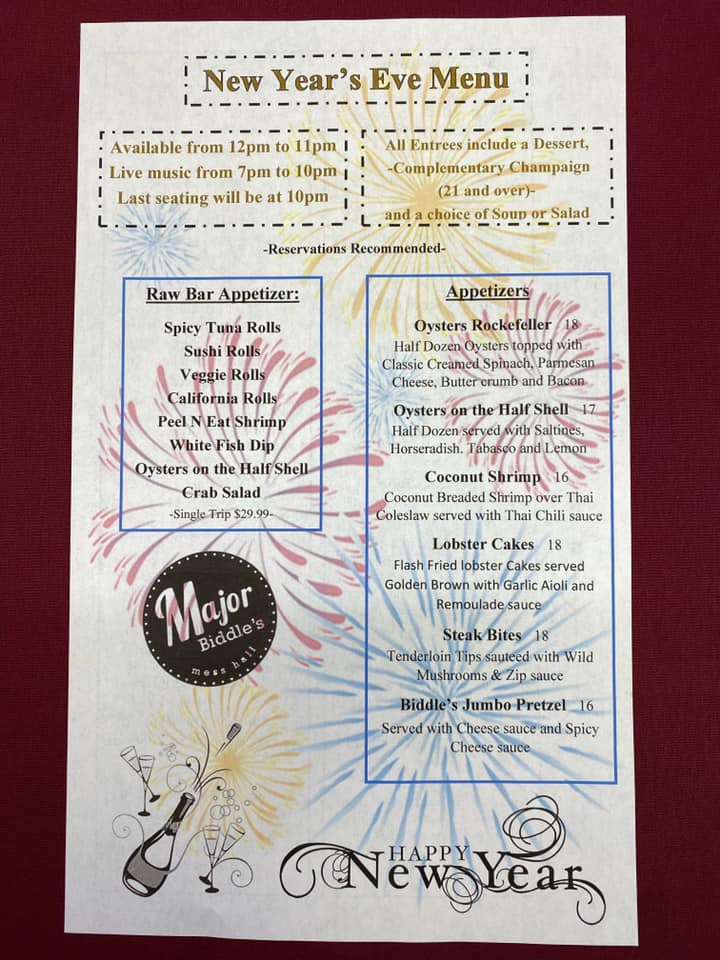 New Year's Eve Menu
Available from 12pm to 11pm
Live music from 7pm to 10pm
Last seating will be at 10pm
All Entrees include a Dessert,
-Complementary Champaign
(21 and over)-
and a choice of Soup or Salad
-Reservations Recommended-
Raw Bar Appetizer:
Spicy Tuna Rolls
Sushi Rolls
Veggie Rolls
California Rolls
Peel N Eat Shrimp
White Fish Dip
Oysters on the Half Shell
Crab Salad
-Single Trip $29.99-
Appetizers
Oysters Rockefeller 18
Half Dozen Oysters topped with
Classic Creamed Spinach, Parmesan
Cheese, Butter crumb and Bacon
Oysters on the Half Shell 17
Half Dozen served with Saltines,
Horseradish. Tabasco and Lemon
Coconut Shrimp 16
Coconut Breaded Shrimp over Thai
Coleslaw served with Thai Chili sauce
Lobster Cakes 18
Flash Fried lobster Cakes served
Golden Brown with Garlic Aioli and
Remoulade sauce
Steak Bites 18
Tenderloin Tips sauteed with Wild
Mushrooms & Zip sauce
Biddle's Jumbo Pretzel 16
Served with Cheese sauce and Spicy
Cheese sauce
Major
Biddle's
mess hall
HAPPY
New Year